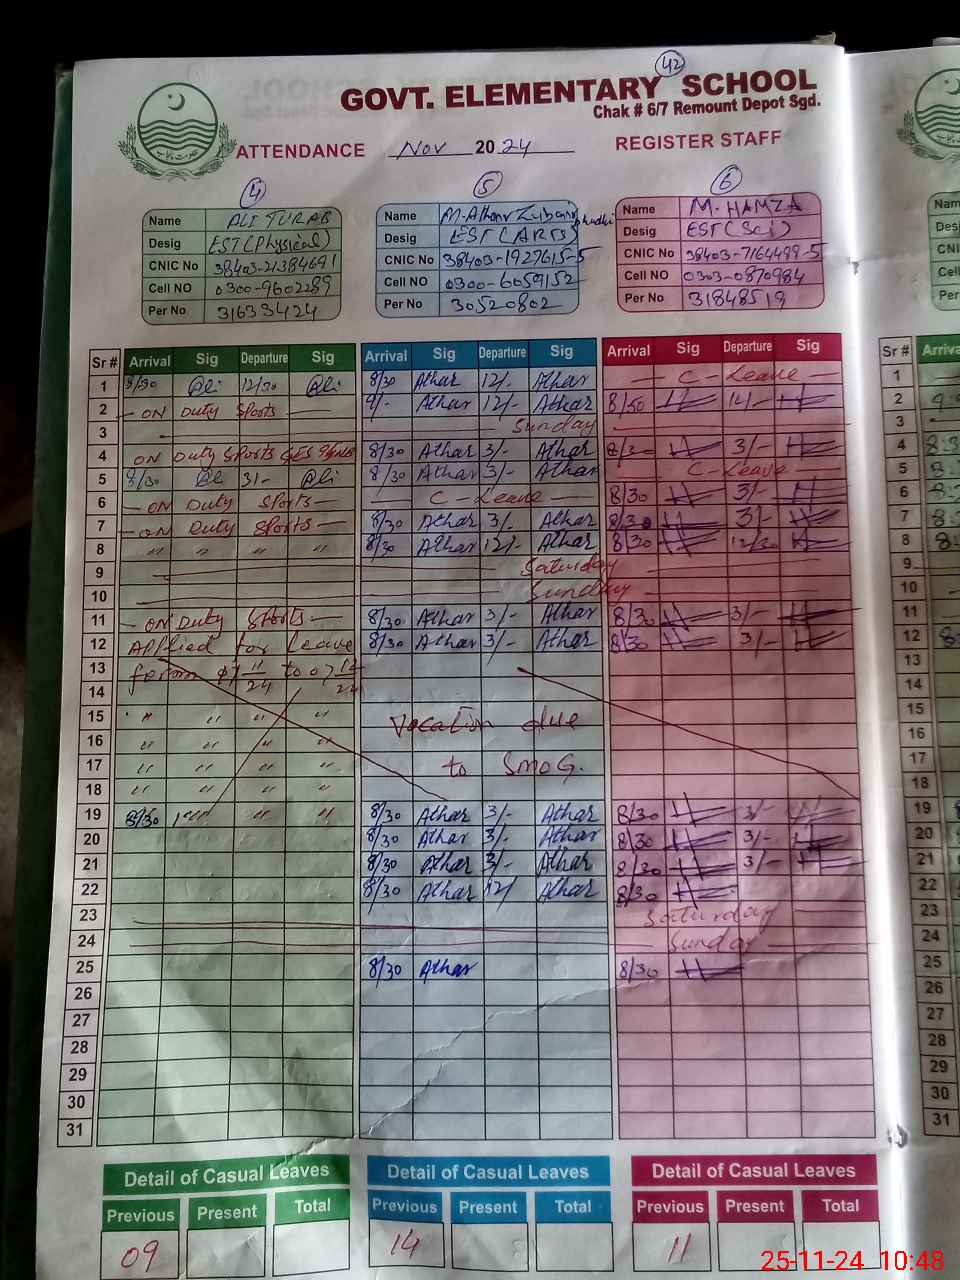 42
GOVT. ELEMENTARY SCHOOL
Chak # 6/7 Remount Depot Sgd.
ATTENDANCE Nov 2024 REGISTER STAFF
4 5 6
Name ALI TURAB Name M. Athar Name M. HAMZA
Desig EST (Physical) Desig EST (ARTS) Desig EST (Sci)
CNIC No 38403-21384691 CNIC No 38403-1927615-5 CNIC No 38403-7164499-5
Cell NO 0300-9602289 Cell NO 0300-6059152 Cell NO 0303-0870984
Per No 31633424 Per No 30520802 Per No 31848519
Sr # Arrival Sig Departure Sig Arrival Sig Departure Sig Arrival Sig Departure Sig Sr # Arriva
1 8/30 Ali 12/30 Ali 8/30 Athar 12/- Athar C-Leave 1
2 ON Duty Sports 9/- Athar 12/- Athar 8/50 H 14/- H 2
3 Sunday 3
4 ON Duty Sports 8/30 Athar 3/- Athar 8/30 H 3/- H 4
5 8/30 Ali 3/- Ali 8/30 Athar 3/- Athar C-Leave 5
6 ON Duty Sports C-Leave 8/30 H 3/- H 6
7 ON Duty Sports 8/30 Athar 3/- Athar 8/30 H 3/- H 7
8 〃 〃 〃 〃 8/30 Athar 12/- Athar 8/30 H 12/30 H 8
9 Saturday 9
10 Sunday 10
11 ON Duty Sports 8/30 Athar 3/- Athar 8/30 H 3/- H 11
12 Applied for Leave 8/30 Athar 3/- Athar 8/30 H 3/- H 12
13 13
14 14
15 〃 〃 〃 〃 Vocation due 15
16 〃 〃 〃 〃 16
17 〃 〃 〃 〃 to SMOG. 17
18 〃 〃 〃 〃 18
19 8/30 〃 〃 〃 8/30 Athar 3/- Athar 8/30 H 3/- H 19
20 8/30 Athar 3/- Athar 8/30 H 3/- H 20
21 8/30 Athar 3/- Athar 8/30 H 3/- H 21
22 8/30 Athar 12/- Athar 8/30 H 22
23 Saturday 23
24 Sunday 24
25 8/30 Athar 8/30 H 25
26 26
27 27
28 28
29 29
30 30
31 31
Detail of Casual Leaves Detail of Casual Leaves Detail of Casual Leaves
Previous Present Total Previous Present Total Previous Present Total
09 14 11
25-11-24 10:48